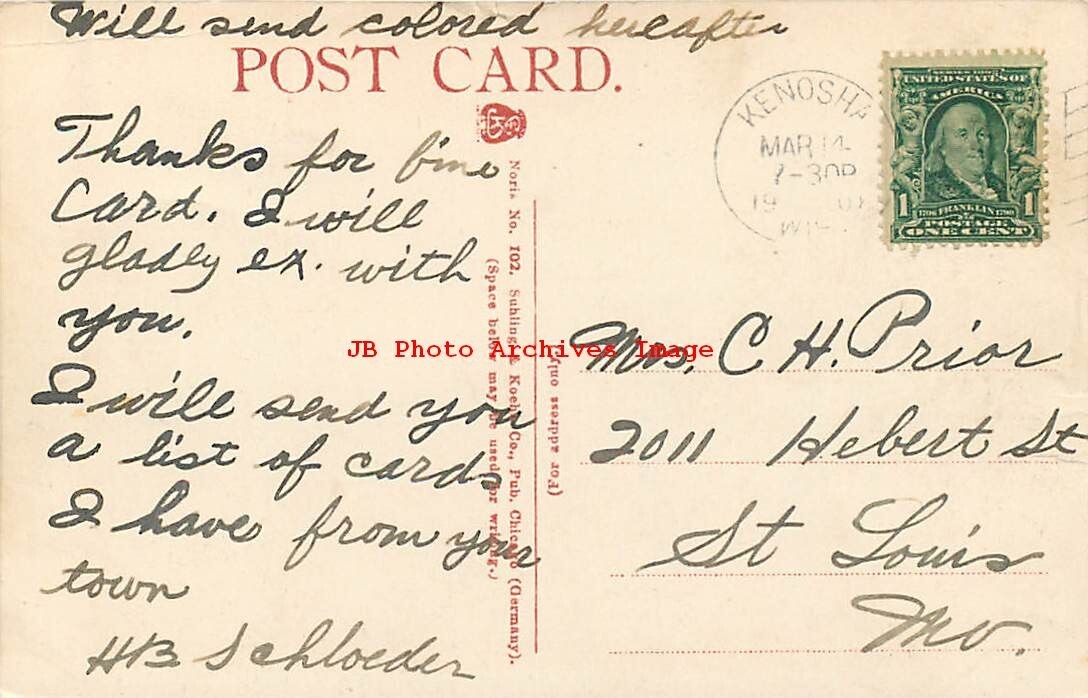 Will send colored hereafter
POST CARD.
Thanks for fine
Card. I will
gladly ex. with
you.
I will send you
a list of cards
I have from your
town
HB Schloeder
No. 102. Suhling & Koehn Co., Pub. Chicago (Germany).
(Space below may be used for writing.)
(For address only)
KENOSHA
MAR 14
7-30P
19
WIS.
SERIES 1902
UNITED STATES OF
AMERICA
1 1706 FRANKLIN 1790 1
POSTAGE
ONE CENT
Mrs. C H. Prior
2011 Hebert St
St Louis
Mo.
JB Photo Archives Image